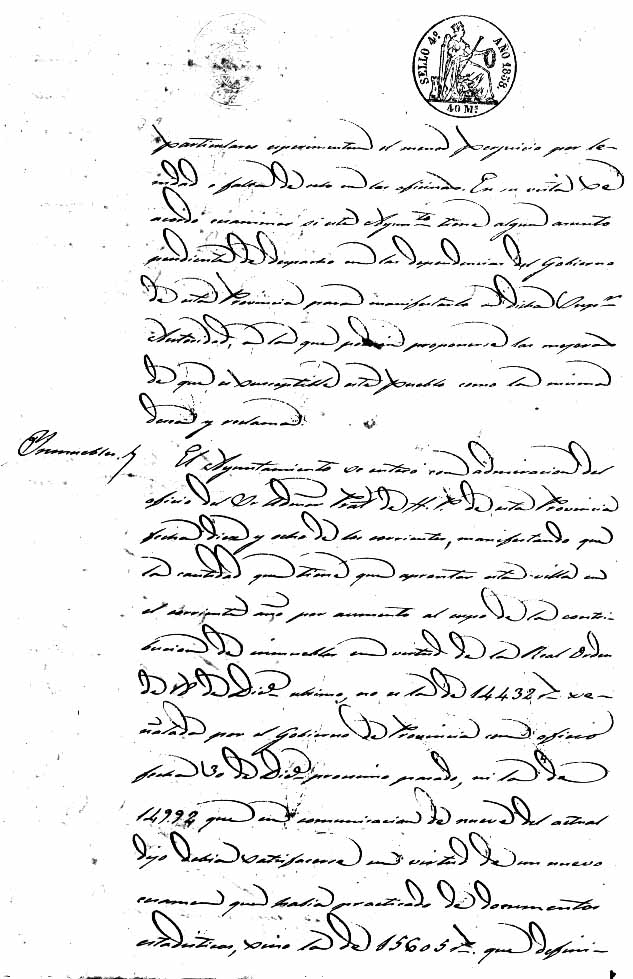 SELLO 4º AÑO 1858.
40 Ms
particulares esperimenten el menor perjuicio por le-
nidad o falta de celo en las oficinas. En su vista se
acordó examinar si este Ayuntto. tiene algun asunto
pendiente de despacho en las dependencias del Gobierno
de esta Provincia para manifestarlo a dicha Supr.
Autoridad, a la que proponerse las mejoras
de que es susceptible este pueblo como la misma
desea y reclama.
Inmuebles.
El Ayuntamiento se enteró con admiracion del
oficio del Sr. Admor. Pral. de H. P. de esta Provincia
fecha diez y ocho de los corrientes, manifestando que
la cantidad que tiene que aprontar esta villa en
el corriente año por aumento al cupo de la contri-
bucion de inmuebles en virtud de la Real Orden
de de Dice. ultimo, no es la de 14432 rs. se-
ñalada por el Gobierno de Provincia con oficio
fecha 30 de Dice. procsimo pasado, ni la de
14992 que en comunicacion de nueve del actual
dijo debia satisfacerse en virtud de un nuevo
examen que habia practicado de documentos
estadisticos, sino la de 15605 rs. que defini-